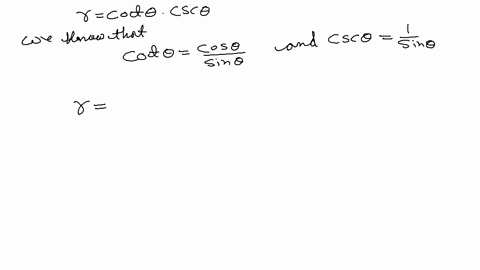 r = cotθ · cscθ
we know that
cotθ = cosθ/sinθ and cscθ = 1/sinθ
r =